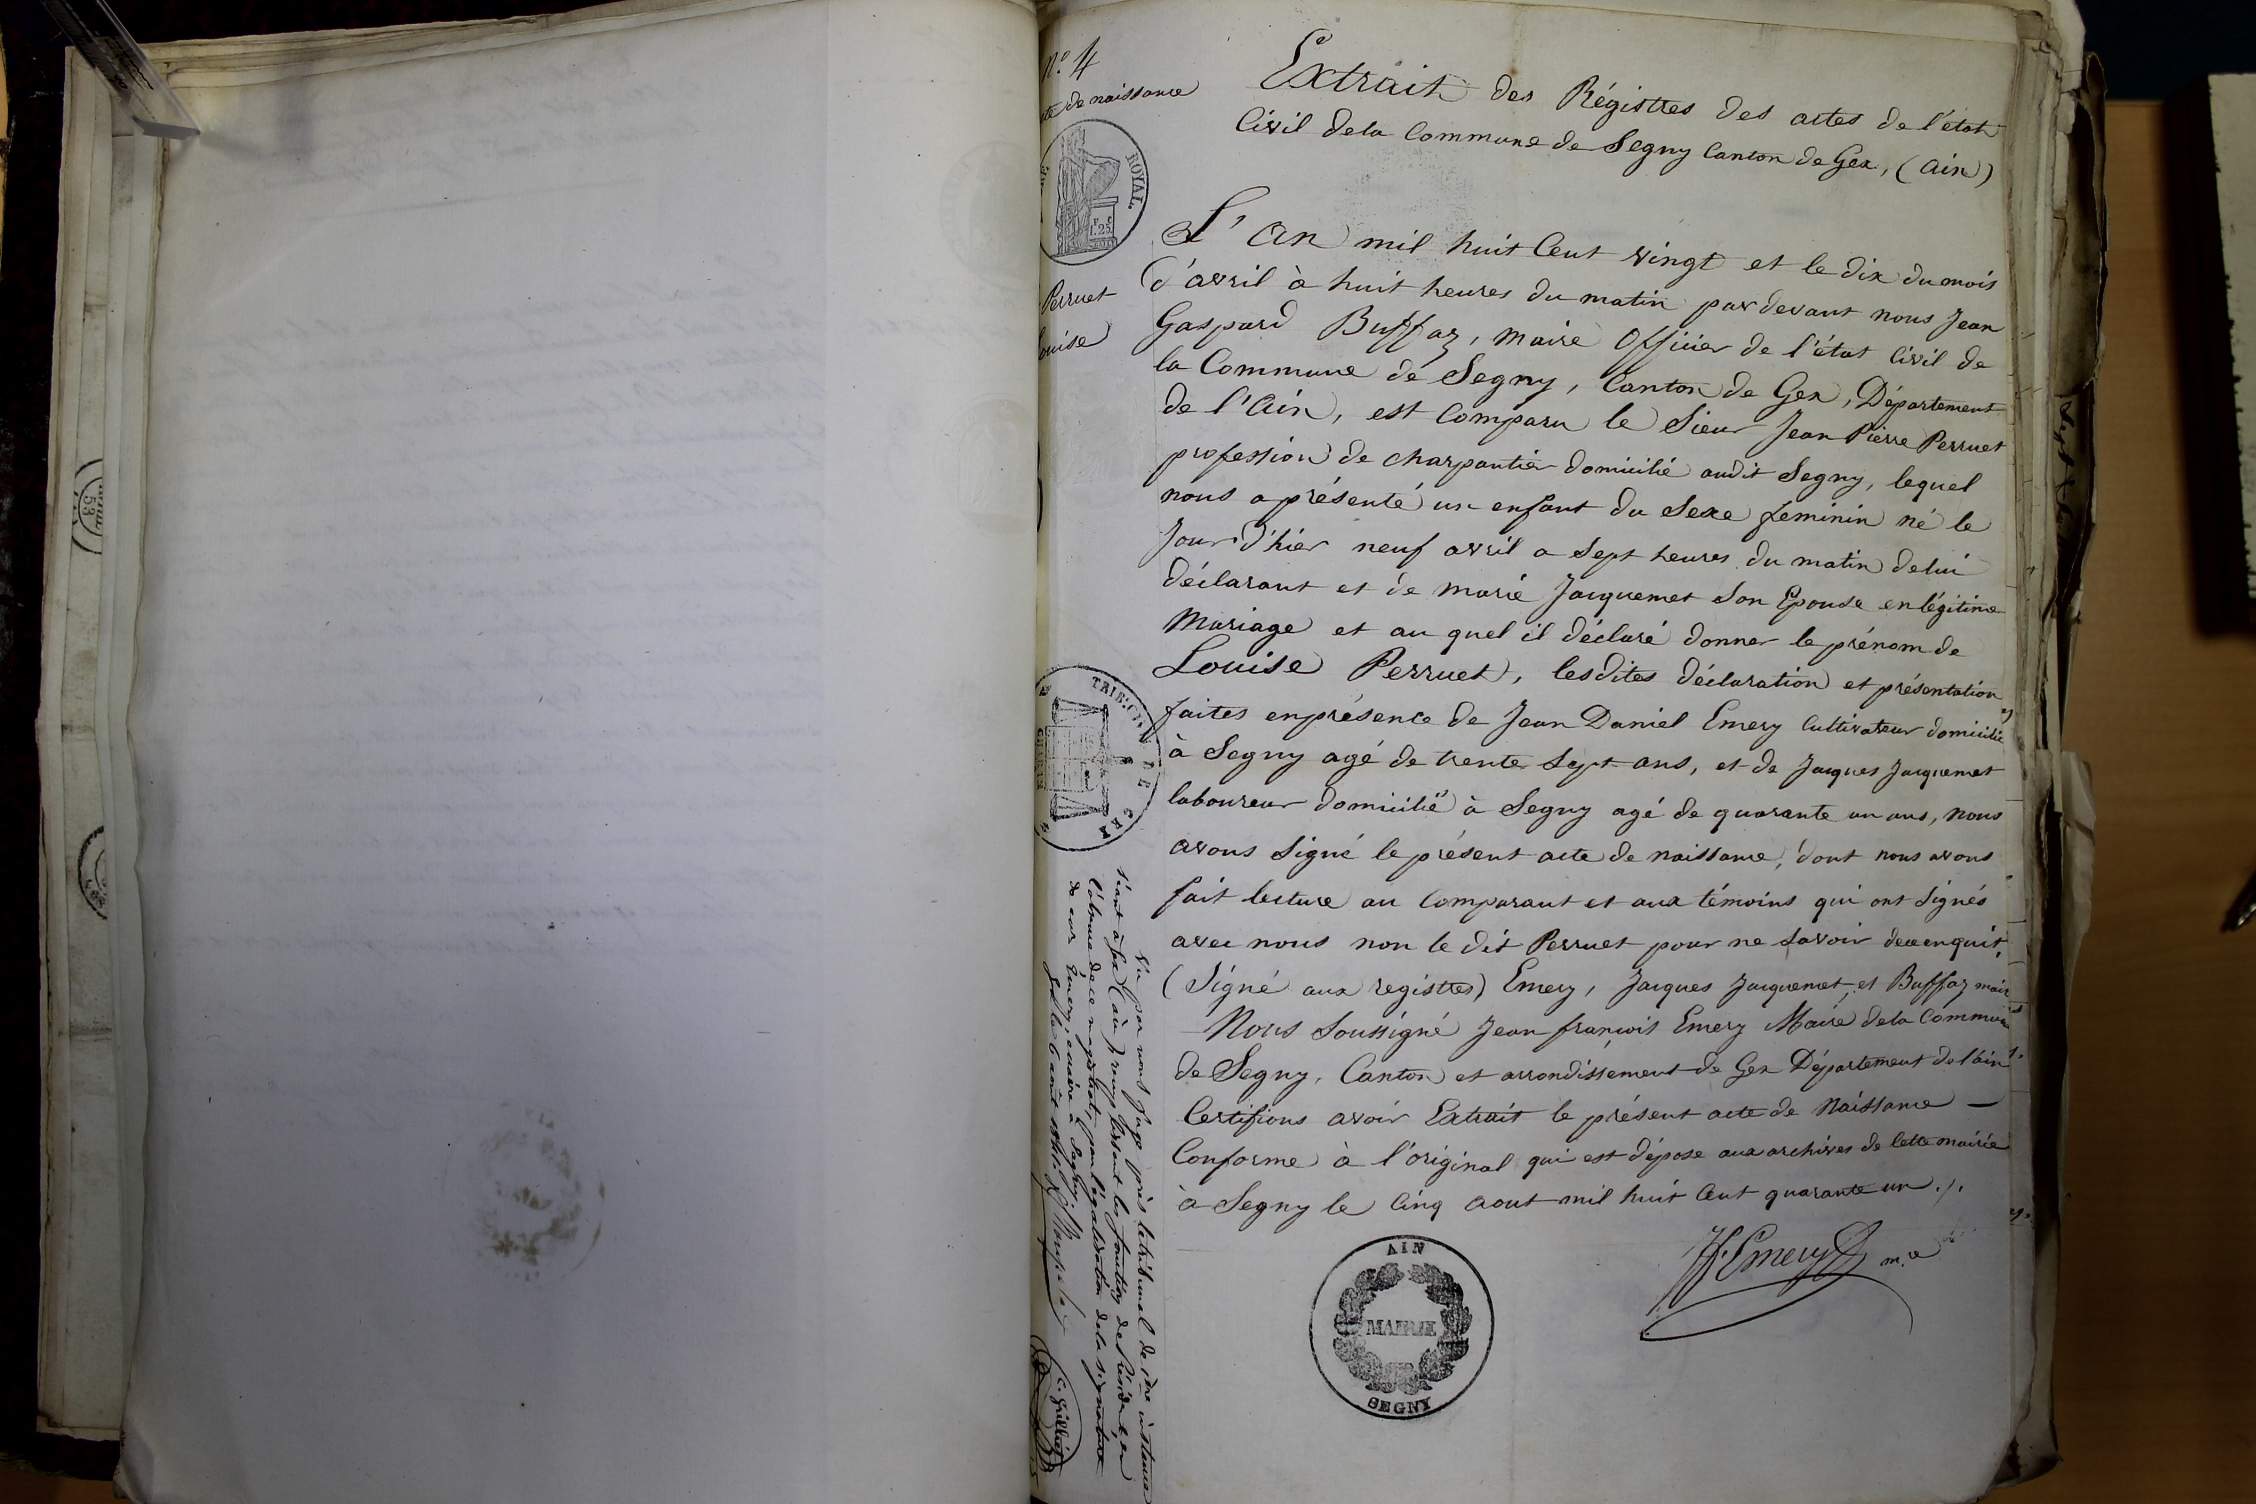 N.º 4
te de naissance
ROYAL.
1.25
Perruet
ouise
Extrait des Régistres des actes de l'état
Civil dela Commune de Segny Canton de Gex, (Ain)
L'An mil huit Cent vingt et le dix du mois
d'avril à huit heures du matin pardevant nous Jean
Gaspard Buffaz, maire Officier de l'état Civil de
la Commune de Segny, Canton de Gex, Département
de l'Ain, est Comparu le Sieur Jean Pierre Perruet
profession de charpantier domicilié audit Segny, lequel
nous a présenté un enfant du Sexe feminin né le
Jour d'hier neuf avril a Sept heures du matin delui
déclarant et de marie Jacquemet Son Epouse en légitime
Mariage et au quel il déclaré donner le prénom de
Louise Perruet, lesdites déclaration et présentation
faites enprésence de Jean Daniel Emery Cultivateur domicilié
à Segny agé de trente Sept ans, et de Jacques Jacquemet
laboureur domicilié à Segny agé de quarante un ans, nous
avons Signé le présent acte de naissance, dont nous avons
fait lecture au Comparant et aux témoins qui ont Signés
avec nous non le dit Perruet pour ne Savoir dece enquit,
(Signé aux registres) Emery, Jacques Jacquemet, et Buffaz maire
Nous Soussigné Jean françois Emery Maire dela Commune
de Segny, Canton et arrondissement de Gex Département de l'ain
Certifions avoir Extrait le présent acte de Naissance —
Conforme à l'original qui est dépose aux archives de Cette mairie
à Segny le Cinq Aout mil huit Cent quarante un ./.
JF. Emery m.e
AIN
MAIRIE
SEGNY
TRIB. CIV. DE GEX
Vu par nous Juge près le tribunal de 1ère instance
séant à Gex (ain) remplissant les fonctions de Président en
l'absence de ce magistrat, pour légalisation de la signature
de Mr Emery, maire à Segny.
Gex le 6 août 1841.
53